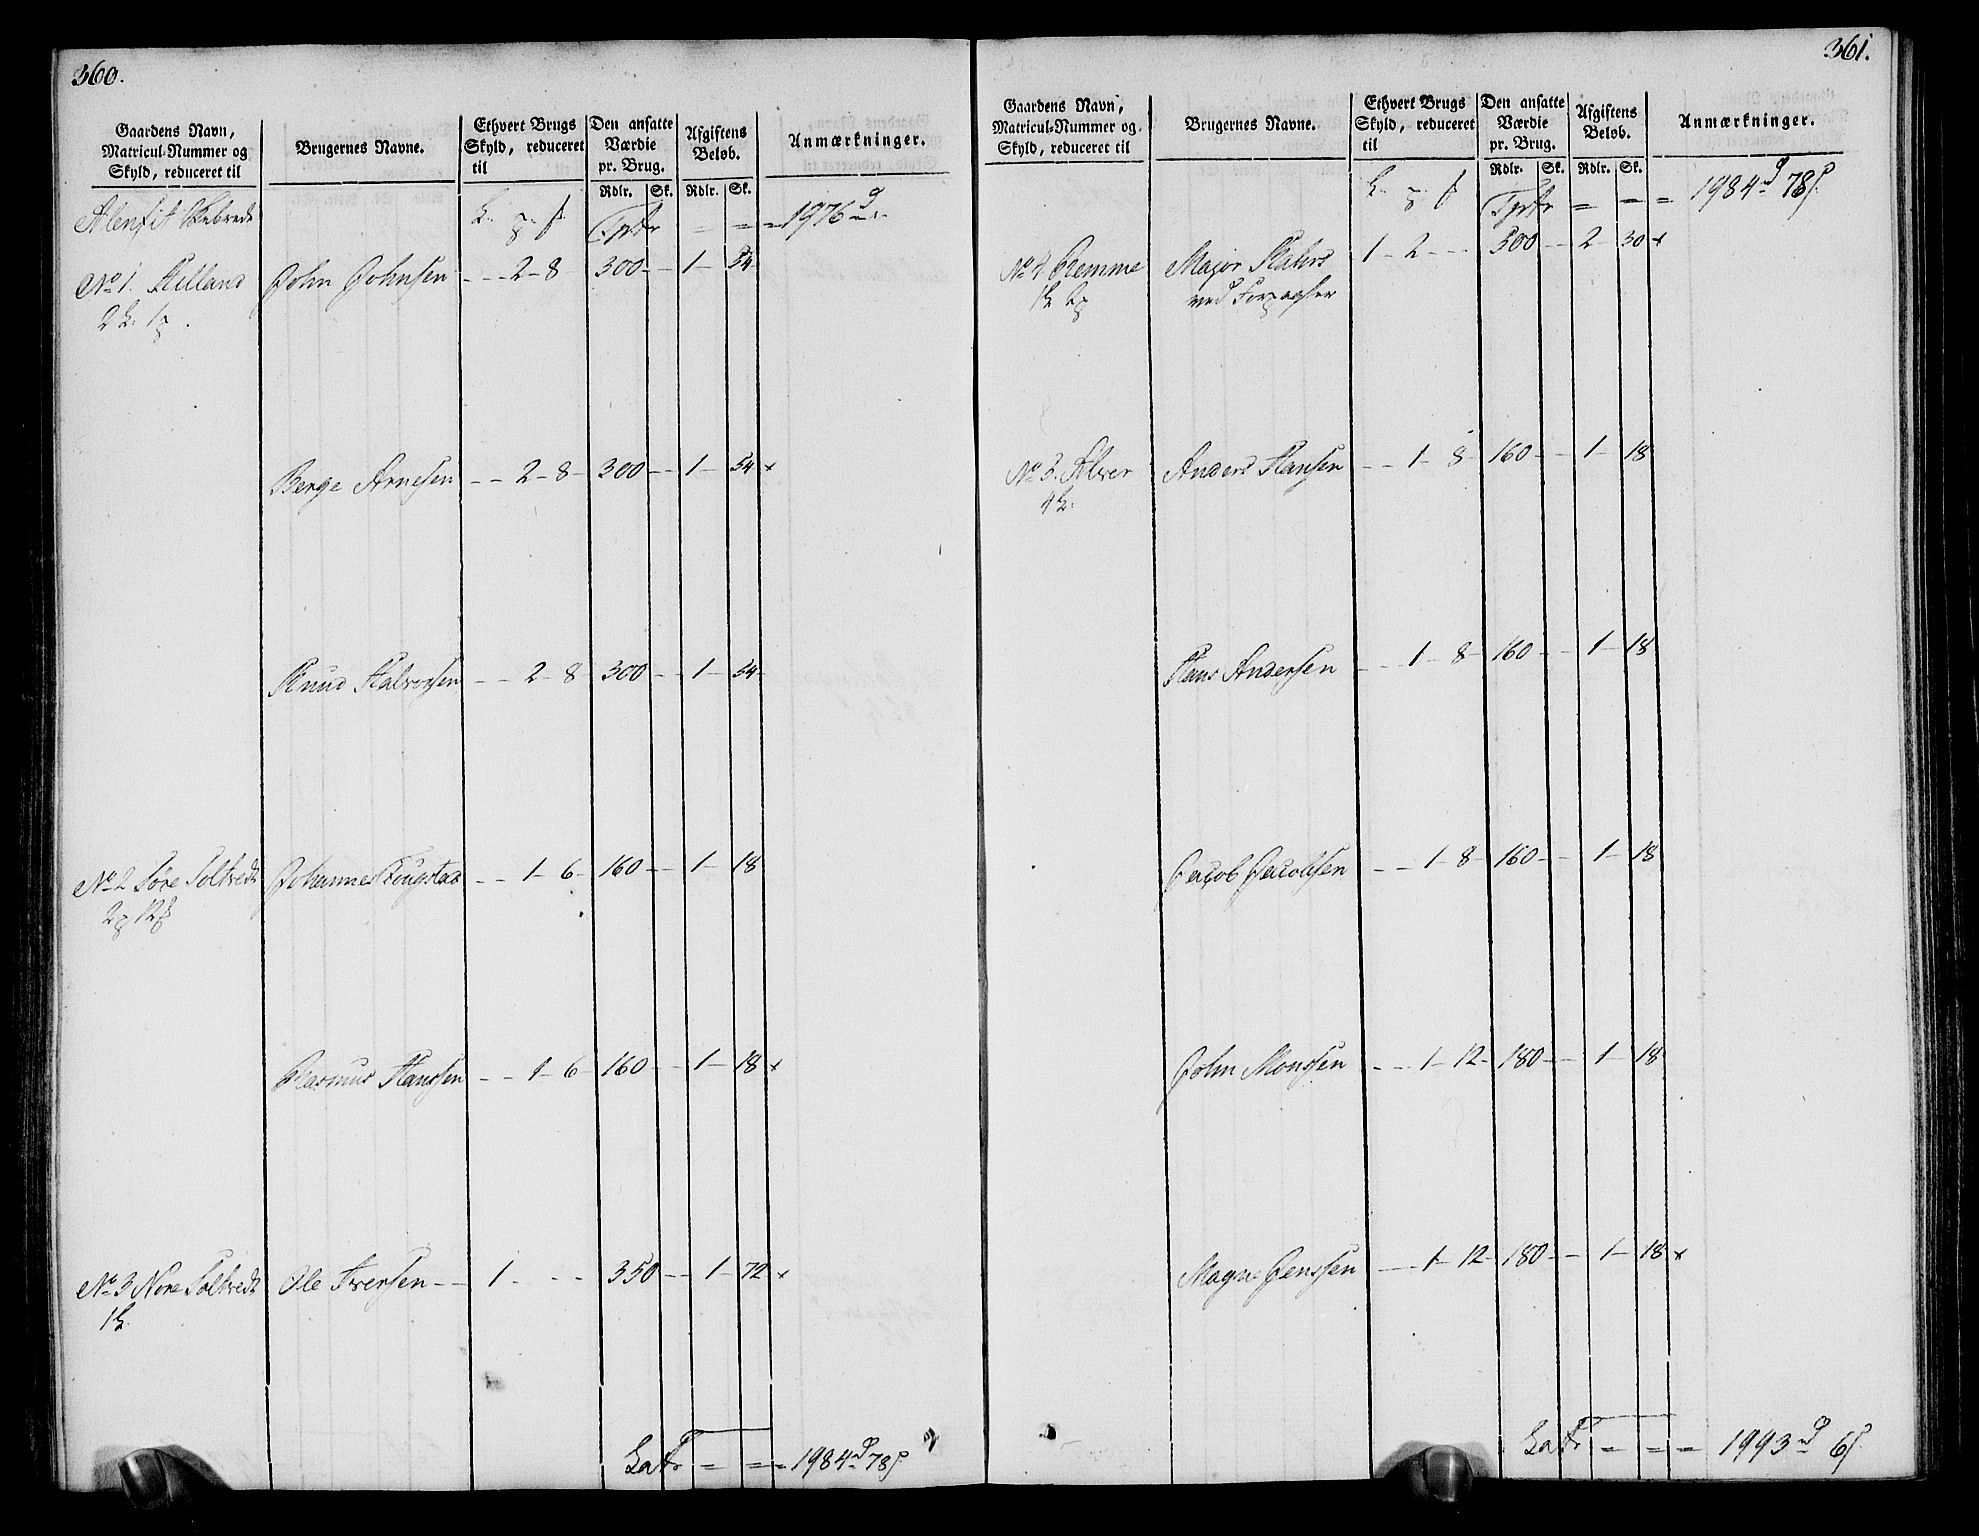 360.
Gaardens Navn, Matricul-Nummer og Skyld, reduceret til
Brugernes Navne.
Ethvert Brugs Skyld, reduceret til
Den ansatte Værdie pr. Brug.
Afgiftens Beløb.
Anmærkninger.
Rdlr. Sk. Rdlr. Sk.
Alenfit Skibrede
Tprtr = = = 1976
No 1. Hilland John Johnsen - - 2 - 8 300 - - 1 - 54
Berge Arnesen - - 2 - 8 - 300 - - 1 - 54 x
Knud Halvorsen - - 2 - 8 300 - - 1 - 54
No 2 Søre Soltvedt Johannes Tougstad - - 1 - 6 - 160 - - 1 - 18
Rasmus Hanssen - - 1 - 6 160 - - 1 - 18 x
No 3 Nore Soltvedt Ole Iversen - - 1 - - - 350 - - 1 - 72 x
Latr = = = 1984 78
361.
Gaardens Navn, Matricul-Nummer og Skyld, reduceret til
Brugernes Navne.
Ethvert Brugs Skyld, reduceret til
Den ansatte Værdie pr. Brug.
Afgiftens Beløb.
Anmærkninger.
Rdlr. Sk. Rdlr. Sk.
Tprtr = = = 1984 78
No 4. Remme Major 1 - 2 - - - 500 - - 2 - 30 x
ved Forpagter
No 5. Alver Anders Hansen - - 1 - 8 - 160 - - 1 - 18
Hans Andersen - - 1 - 8 - 160 - - 1 - 18
Jacob Jacobsen - - 1 - 8 - 160 - - 1 - 18
John Monssen - - 1 - 12 - 180 - - 1 - 18
Magne Jenssen - - 1 - 12 - 180 - - 1 - 18 x
Latr = = = 1993 6